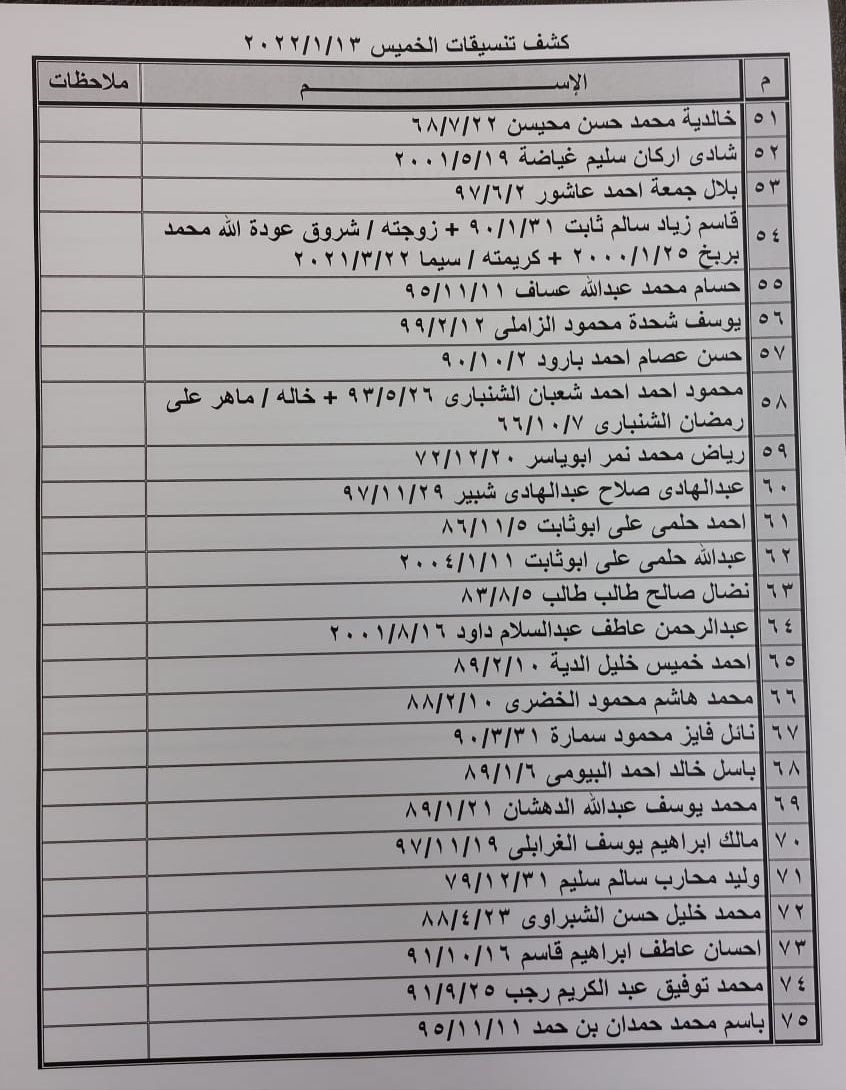 كشف تنسيقات الخميس ٢٠٢٢/١/١٣
م الإســـــــــــم ملاحظات
٥١ خالدية محمد حسن محيسن ٦٨/٧/٢٢
٥٢ شادى اركان سليم غياضة ٢٠٠١/٥/١٩
٥٣ بلال جمعة احمد عاشور ٩٧/٦/٢
٥٤ قاسم زياد سالم ثابت ٩٠/١/٣١ + زوجته / شروق عودة الله محمد
بربخ ٢٠٠٠/١/٢٥ + كريمته / سيما ٢٠٢١/٣/٢٢
٥٥ حسام محمد عبدالله عساف ٩٥/١١/١١
٥٦ يوسف شحدة محمود الزاملى ٩٩/٢/١٢
٥٧ حسن عصام احمد بارود ٩٠/١٠/٢
٥٨ محمود احمد احمد شعبان الشنبارى ٩٣/٥/٢٦ + خاله / ماهر على
رمضان الشنبارى ٦٦/١٠/٧
٥٩ رياض محمد نمر ابوياسر ٧٢/١٢/٢٠
٦٠ عبدالهادى صلاح عبدالهادى شبير ٩٧/١١/٢٩
٦١ احمد حلمى على ابوثابت ٨٦/١١/٥
٦٢ عبدالله حلمى على ابوثابت ٢٠٠٤/١/١١
٦٣ نضال صالح طالب طالب ٨٣/٨/٥
٦٤ عبدالرحمن عاطف عبدالسلام داود ٢٠٠١/٨/١٦
٦٥ احمد خميس خليل الدية ٨٩/٢/١٠
٦٦ محمد هاشم محمود الخضرى ٨٨/٢/١٠
٦٧ نائل فايز محمود سمارة ٩٠/٣/٣١
٦٨ باسل خالد احمد البيومى ٨٩/١/٦
٦٩ محمد يوسف عبدالله الدهشان ٨٩/١/٢١
٧٠ مالك ابراهيم يوسف الغرابلى ٩٧/١١/١٩
٧١ وليد محارب سالم سليم ٧٩/١٢/٣١
٧٢ محمد خليل حسن الشبراوى ٨٨/٤/٢٣
٧٣ احسان عاطف ابراهيم قاسم ٩١/١٠/١٦
٧٤ محمد توفيق عبد الكريم رجب ٩١/٩/٢٥
٧٥ باسم محمد حمدان بن حمد ٩٥/١١/١١